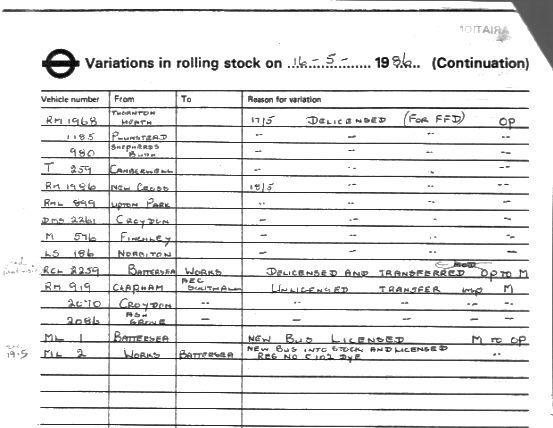 Variations in rolling stock on 16-5- 1986.. (Continuation)
Vehicle number From To Reason for variation
RM 1968 THORNTON HEATH 17/5 DELICENSED (FOR FFD) OP
1185 PLUMSTEAD -- -- -- --
980 SHEPHERDS BUSH -- -- -- --
T 259 CAMBERWELL -- -- -- --
RM 1986 NEW CROSS 18/5 -- -- --
RML 899 UPTON PARK -- -- -- --
DMS 2261 CROYDON -- -- -- --
M 576 FINCHLEY -- -- -- --
LS 186 NORBITON -- -- -- --
RCL 2259 BATTERSEA WORKS DELICENSED AND TRANSFERRED OP TO M
RM 919 CLAPHAM AEC SOUTHALL UNLICENSED TRANSFER M
2070 CROYDON -- -- -- --
2086 ASH GROVE -- -- -- --
ML 1 BATTERSEA NEW BUS LICENSED M TO OP
19.5 ML 2 WORKS BATTERSEA NEW BUS INTO STOCK AND LICENSED REG NO C102 DYE --